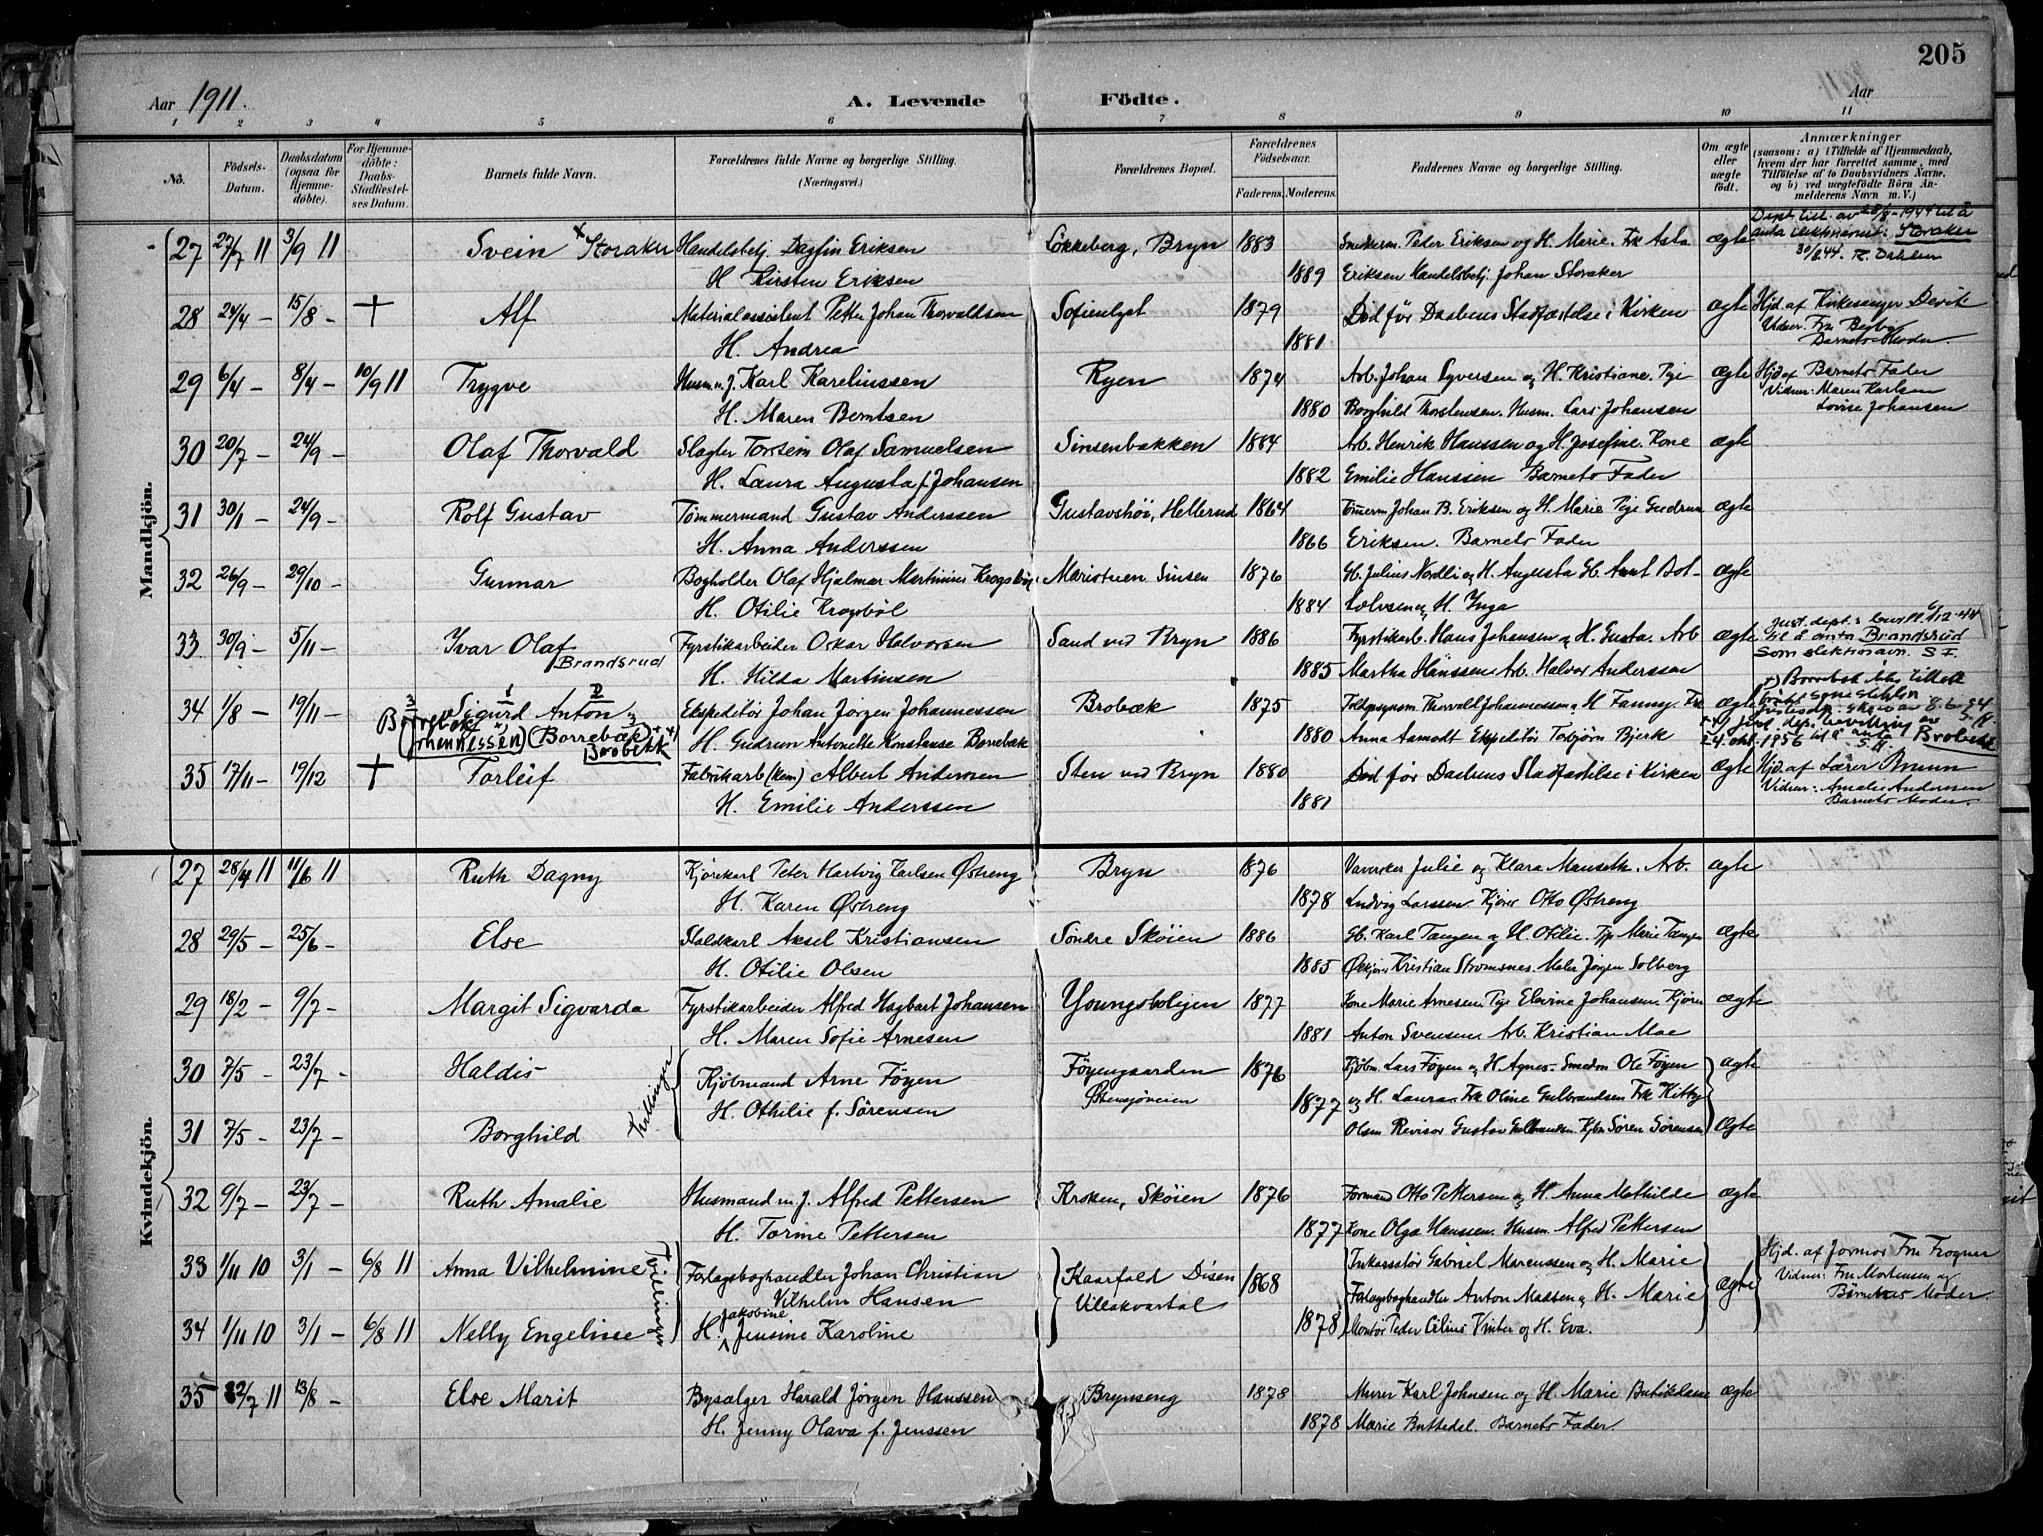 205
Aar 1911. A. Levende Födte. Aar
1 2 3 4 5 6 7 8 9 10 11
No. Födsels-Datum. Daabsdatum (ogsaa for Hjemme-döbte). For Hjemme-döbte: Daabs-Stadfæstel-ses Datum. Barnets fulde Navn. Forældrenes fulde Navne og borgerlige Stilling. (Næringsvei.) Forældrenes Bopæl. Forældrenes Födselsaar. Faderens. Moderens. Faddernes Navne og borgerlige Stilling. Om ægte eller uægte födt. Anmærkninger (saasom: a) i Tilfælde af Hjemmedaab, hvem der har forrettet samme, med Tilföielse af to Daabsvidners Navne, og b) ved uægtefödte Börn An-melderens Navn m. V.)
Mandkjön.
27 27/7 11 3/9 11 Svein × Storaker Handelsbetj. Dagfin Eriksen Løkkeberg, Bryn 1883 Snedkerm. Peder Eriksen og H. Marie. Frk Asta ægte
H. Kirsten Eriksen 1889 Eriksen Handelsbetj. Johan Storaker 30/8 44. R. Dahlen
28 24/4 – 15/8 – + Alf Materialassistent Petter Johan Thorvaldsen Sofienlyst 1879 Død før Daabens Stadfæstelse i Kirken ægte Hjd. af Kirkesanger Devik
H. Andrea 1881 Vidner: Fru Begby Barnets Moder.
29 6/4 – 8/4 – 10/9 11 Trygve Husm. u. J. Karl Karelinssen Ryen 1874 Arb. Johan Syversen og H. Kristiane. Pige ægte Hjd af Barnets Fader
H. Maren Berntsen 1880 Borghild Thorstensen. Husm. Lars Johansen Vidner: Maren Karlsen Lovise Johansen
30 20/7 – 24/9 – Olaf Thorvald Slagter Torstein Olaf Samuelsen Sinsenbakken 1884 Arb. Henrik Hanssen og H. Josefine. Kone ægte
H. Laura Augusta f. Johansen 1882 Emilie Hanssen Barnets Fader
31 30/1 – 24/9 – Rolf Gustav Tømmermand Gustav Anderssen Gustavshøi, Hellerud 1864 Tømerm Johan B. Eriksen og H. Marie Pige Gudrun ægte
H. Anna Anderssen 1866 Eriksen. Barnets Fader
32 26/9 – 29/10 – Gunnar Bogholder Olaf Hjalmar Martinius Krogsbøl Maristuen Sinsen 1876 Gb. Julius Nordli og H. Augusta Gb. ægte
H. Otilie Krogsbøl 1884 H. Inga
33 30/9 – 5/11 – Ivar Olaf Brandsrud Fyrstikarbeider Oskar Halvorsen Sand ved Bryn 1886 Fyrstikarb. Hans Johansen og H. Gusta. Arb ægte til å anta Brandsrud
H. Hilda Martinsen 1885 Martha Hanssen Arb. Halvor Anderssen som slektsnavn. S.F.
34 1/8 – 19/11 – Sigurd Anton Ekspeditør Johan Jørgen Johannessen Brobæk 1875 Thorvald Johannessen og H. Fanny. Frk ægte
(Borrebæk) Brobekk H. Gudrun Antonette Konstanse Borrebæk 1880 Anna Aamodt Ekspeditør Torbjørn Bjerk 24. okt. 1956 til å anta Brobekk
35 17/11 – 19/12 + Torleif Fabrikarb (kem) Albert Anderssen Sten ved Bryn 1880 Død før Daabens Stadfæstelse i Kirken ægte Hjd. af Lærer
H. Emilie Anderssen 1881 Vidner: Amalie Anderssen Barnets Moder.
Kvindekjön.
27 28/4 11 11/6 11 Ruth Dagny Kjørekarl Peter Hartvig Karlsen Østreng Bryn 1876 Væverske Julie og Klara Manseth. Arb. ægte
H. Karen Østreng 1878 Ludvig Larssen. Kjører Otto Østreng
28 29/5 – 25/6 – Else Staldkarl Aksel Kristiansen Søndre Skøien 1886 Gb. Karl Tangen og H. Otilie. Marie Tangen ægte
H. Otilie Olsen 1885 Kristian Stromsnes. Maler Jørgen Solberg
29 18/2 – 9/7 – Margit Sigvarda Fyrstikarbeider Alfred Hagbart Johansen Youngsboligen 1877 Kone Marie Arnesen. Pige Elevine Johansen. Kjører ægte
H. Maren Sofie Arnesen 1881 Anton Svensen. Arb. Kristian Moe
30 7/5 – 23/7 – Haldis Kjøbmand Arne Føyen Føyengaarden 1876 Kjøbm. Lars Føyen og H. Agnes – Smedm Ole Føyen ægte
Tvillinger H. Othilie f. Sørensen Østensjøveien 1877 og H. Laura. Frk Oline Gulbrandsen Frk Kitty
31 7/5 – 23/7 – Borghild Olsen Revisor Gustav Gulbrandsen. Kjbm Søren Sørensen ægte
32 9/7 – 23/7 – Ruth Amalie Husmand u. J. Alfred Pettersen Kroken, Skøien 1876 Formand Otto Pettersen og H. Anna Mathilde ægte
H. Torine Pettersen 1877 Kone Olga Hanssen. Husm. Alfred Pettersen
33 1/11 10 3/1 – 6/8 11 Anna Vilhelmine Tvillinger Forlagsboghandler Johan Christian Kaarfald Disen 1868 Inkassatør Gabriel Marenssen og H. Marie ægte Hjd. af Jormor Fru Frogner
Vilhelm Hansen Villakvartal Forlagsboghandler Anton Madsen og H. Marie Vidner: Fru Mortensen og Børnenes Moder.
34 1/11 10 3/1 – 6/8 11 Nelly Engeline H. Jakobine Jensine Karoline 1878 Montør Peder Cilius Vinter og H. Eva.
35 22/7 11 13/8 – Else Marit Bysælger Harald Jørgen Hanssen Brynseng 1878 Murer Karl Johnsen og H. Marie ægte
H. Jenny Olava f. Jenssen 1878 Marie Buttedal. Barnets Fader.